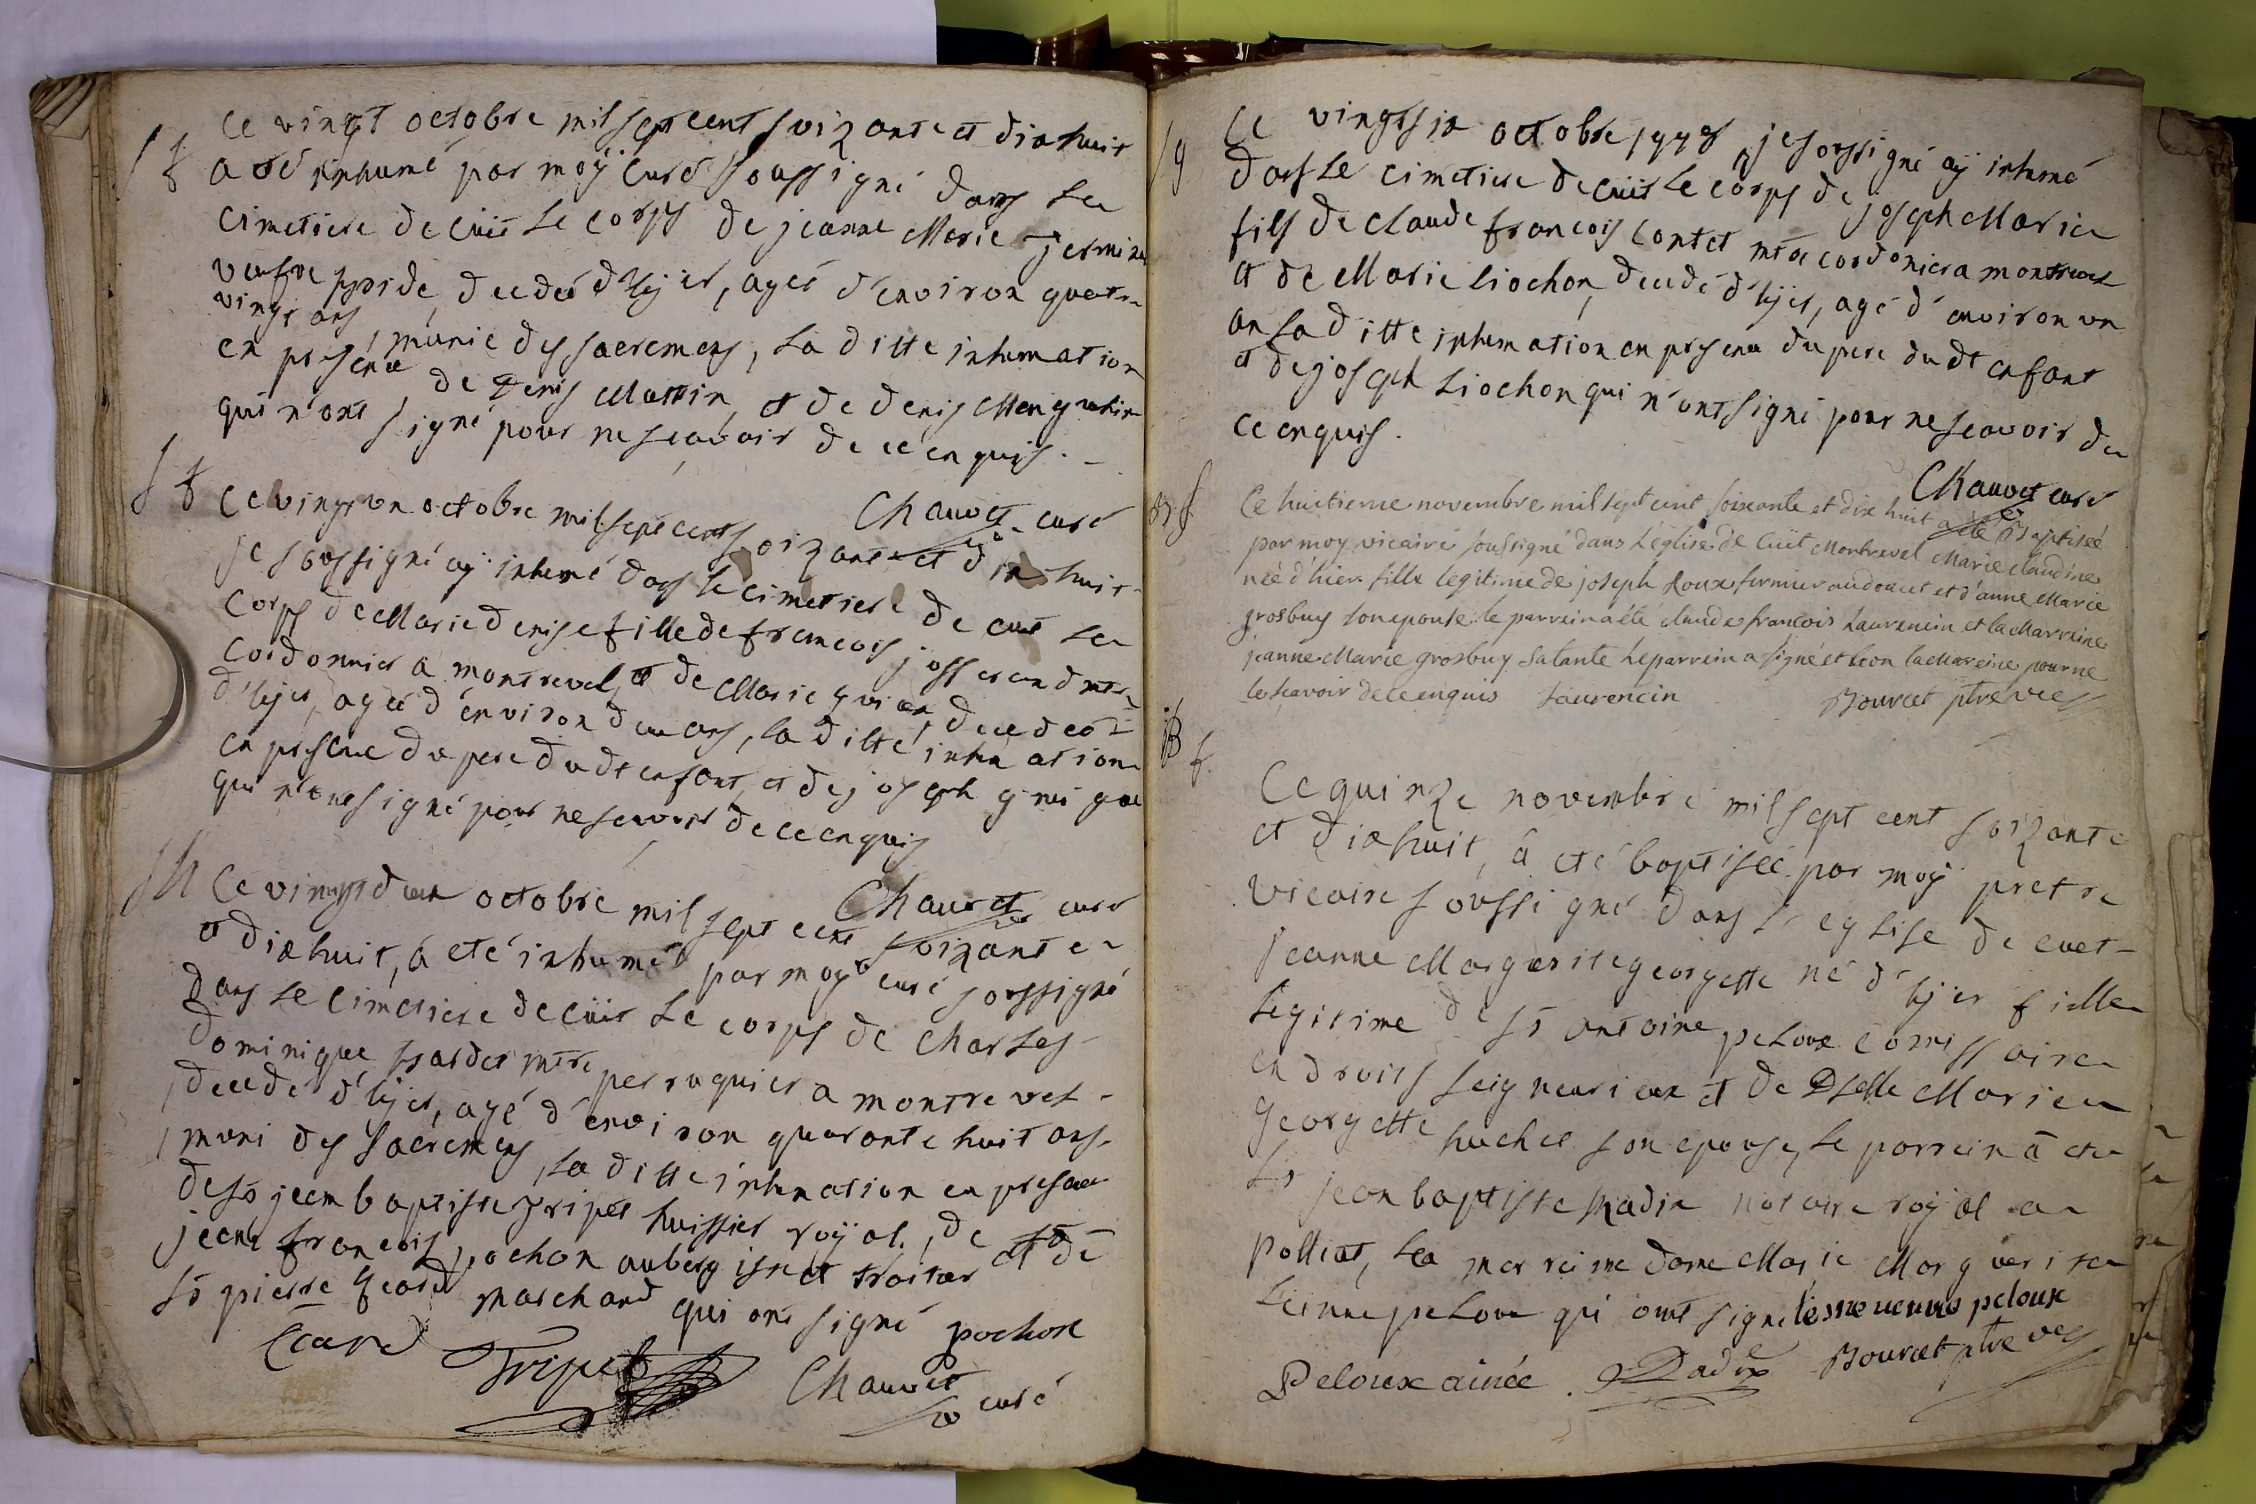 S f
Ce vingt octobre mil sept cent soizante et dix huit
a été inhumé par moÿ curé soussigné dans le
cimetiere de cüet le corps de jeanne Marie
veufve decedeé d'hÿer, ageé d'environ quatre
vingt ans, munie des sacremens, la ditte inhumation
en presence de Denis Mattin, et de denis
qui n'ont signé pour ne scavoir de ce enquis.
Chauvet curé
S f
Ce vingt un octobre mil sept cents soizante et dix huit
je soussigné aÿ inhumé dans le cimetiere de cuet le
corps de Marie denise fille de francois josserand mtre
cordonnier a montrevel, et de Marie decedeé
d'hÿer, ageé d'environ deux ans, la ditte inhumation
en presence du pere du dt enfant, et de joseph
qui n'ont signé pour ne scavoir de ce enquis
Chauvet curé
S h
Ce vingt deux octobre mil sept cent soizante
et dix huit, à eté inhumé par moÿ curé soussigné
dans le cimetiere de cüet le corps de Charles
Dominique mtre perruquier a montrevel
decedé d'hÿer, agé d'environ quarante huit ans,
muni des sacremens, la ditte inhumation en presence
de sr jean baptiste Tripet huissier roÿal, de
jean francois pochon aubergiste et traiteur et de
sr pierre marchand qui ont signé
pochon
Tripet
Chauvet curé
S g
Ce vingt six octobre 1778 je soussigné aÿ inhumé
dans le cimetiere de cüet le corps de joseph Marie
fils de Claude francois Contet mtre cordonier a montrevel
et de Marie Liochon, decedé d'hÿer, agé d'environ un
an la ditte inhumation en presence du pere du dt enfant
et de joseph Liochon qui n'ont signé pour ne scavoir de
ce enquis.
Chauvet curé
B f
Ce huitieme novembre mil sept cent soixante et dix huit a été Baptiseé
par moy vicaire soussigné dans L'eglise de Cuët Montrevel Marie claudine
neé d'hier fille legitime de joseph Roux fermier au doucet et d'anne Marie
grosbuy son epouse le parrein a été claude francois Laurencin et la Marreine
jeanne Marie grosbuy sa tante le parrein a signé et non la Mareine pour ne
le scavoir de ce enquis Laurencin
Bourcet ptre vic
B f.
Ce quinze novembre mil sept cent soizante
et dix huit, à eté baptiseé par moÿ pretre
vicaire soussigné dans l'eglise de cuet
jeanne Marguerite georgette né d'hÿer fille
legitime de sr antoine peloux comissaire
en droits seigneuriaux et de Dselle Marie
georgette huchet son epouse, le parrein à ete
sr jean baptiste notaire roÿal a
Polliat, la marreine dame Marie Marguerite
peloux qui ont signé peloux
Peloux ainée
Bourcet ptre vic